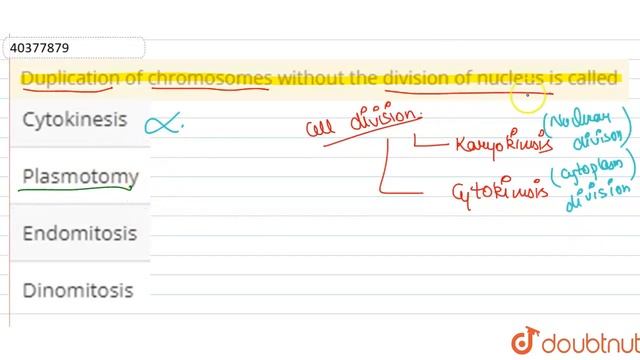 40377879
Duplication of chromosomes without the division of nucleus is called
Cytokinesis
Plasmotomy
Endomitosis
Dinomitosis
Cell division
Karyokinesis (Nuclear division)
Cytokinesis (cytoplasm division)
doubtnut